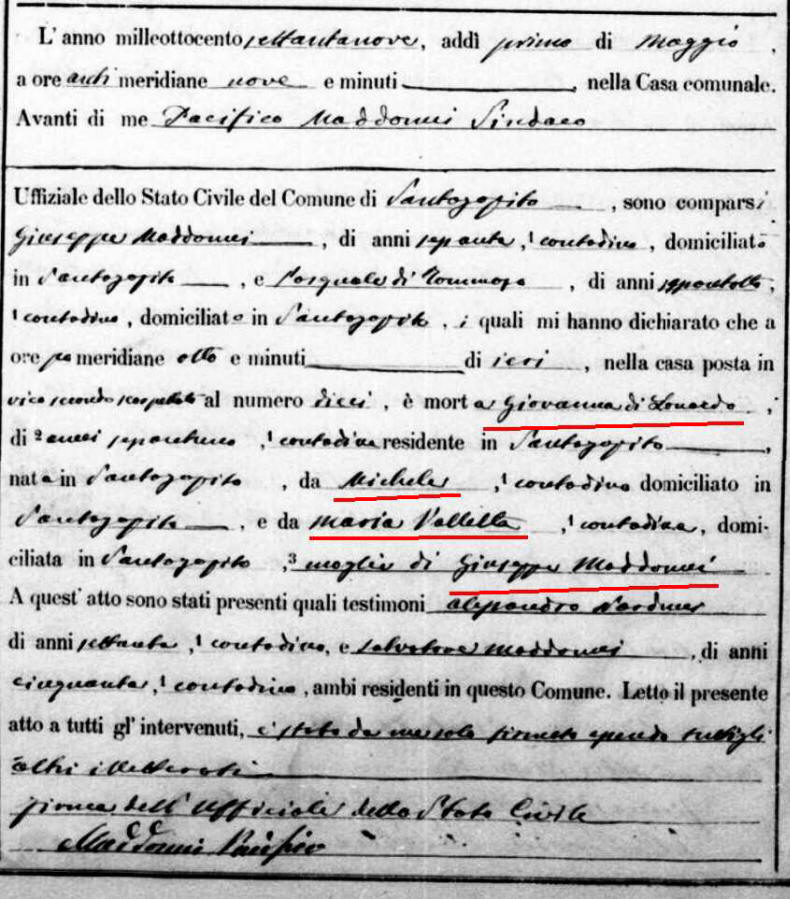 L'anno milleottocento settantanove, addì primo di Maggio,
a ore anti meridiane nove e minuti , nella Casa comunale.
Avanti di me Pacifico Maddonni Sindaco
Uffiziale dello Stato Civile del Comune di Santagapito , sono comparsi
Giuseppe Maddonni , di anni , ¹ contadino , domiciliato
in Santagapito , e Pasquale di Tommaso , di anni ,
¹ contadino , domiciliato in Santagapito , i quali mi hanno dichiarato che a
ore po meridiane otto e minuti di ieri , nella casa posta in
vico secondo al numero dieci , è morta Giovanna di Lonardo ,
di ² anni , ¹ contadina residente in Santagapito ,
nata in Santagapito , da Michele , ¹ contadino domiciliato in
Santagapito , e da Maria Vallella , ¹ contadina , domi-
ciliata in Santagapito , ³ moglie di Giuseppe Maddonni
A quest' atto sono stati presenti quali testimoni Alessandro
di anni settanta , ¹ contadino , e Salvatore Maddonni , di anni
cinquanta , ¹ contadino , ambi residenti in questo Comune. Letto il presente
atto a tutti gl' intervenuti, è stato da me solo firmato essendo tutti gli
altri illetterati
firma dell' Ufficiale dello Stato Civile
Maddonni Pacifico